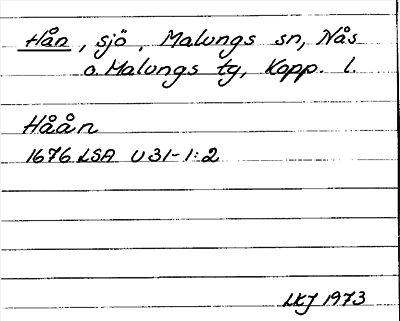 Hån, sjö, Malungs sn, Nås
o. Malungs tg, Kopp. l.
Håån
1676 LSA U31-1:2
LKJ 1973